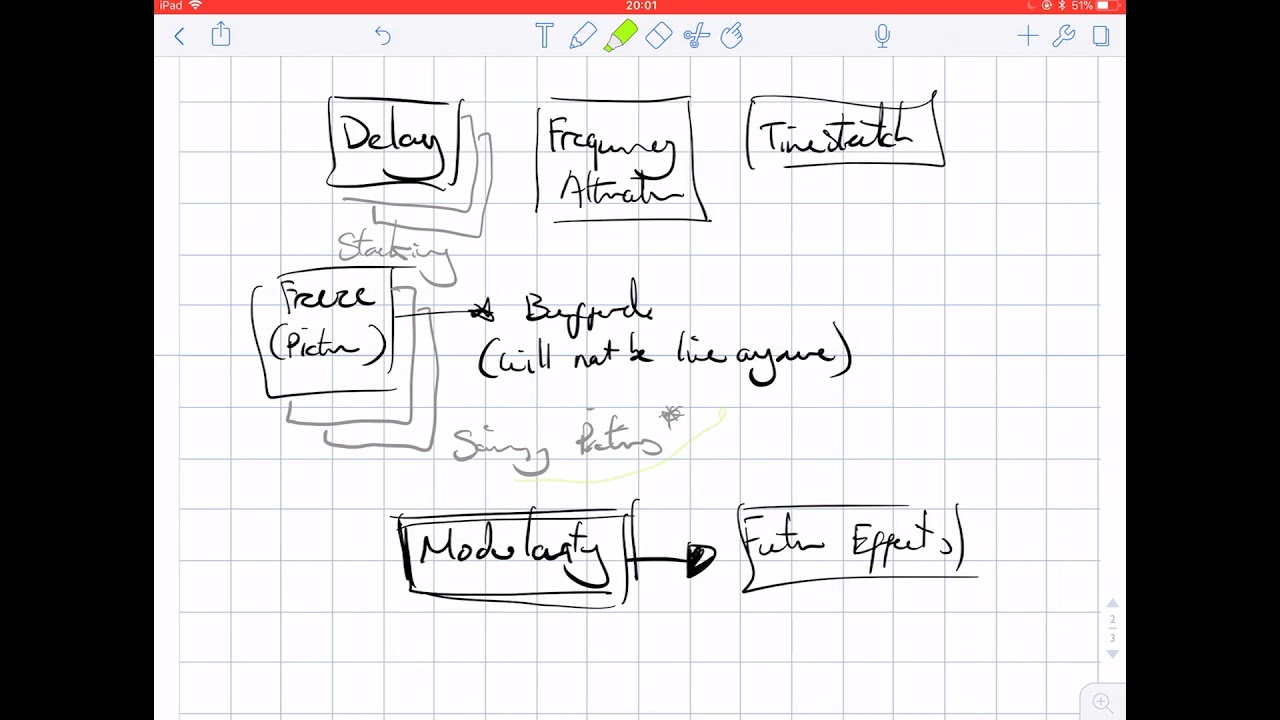 iPad 20:01 51%
Delay
Frequency
Timestretch
Stacking
Freeze
(Picture)
(Will not be live anymore)
Saving Pictures*
Modularity
Future Effects
2
3